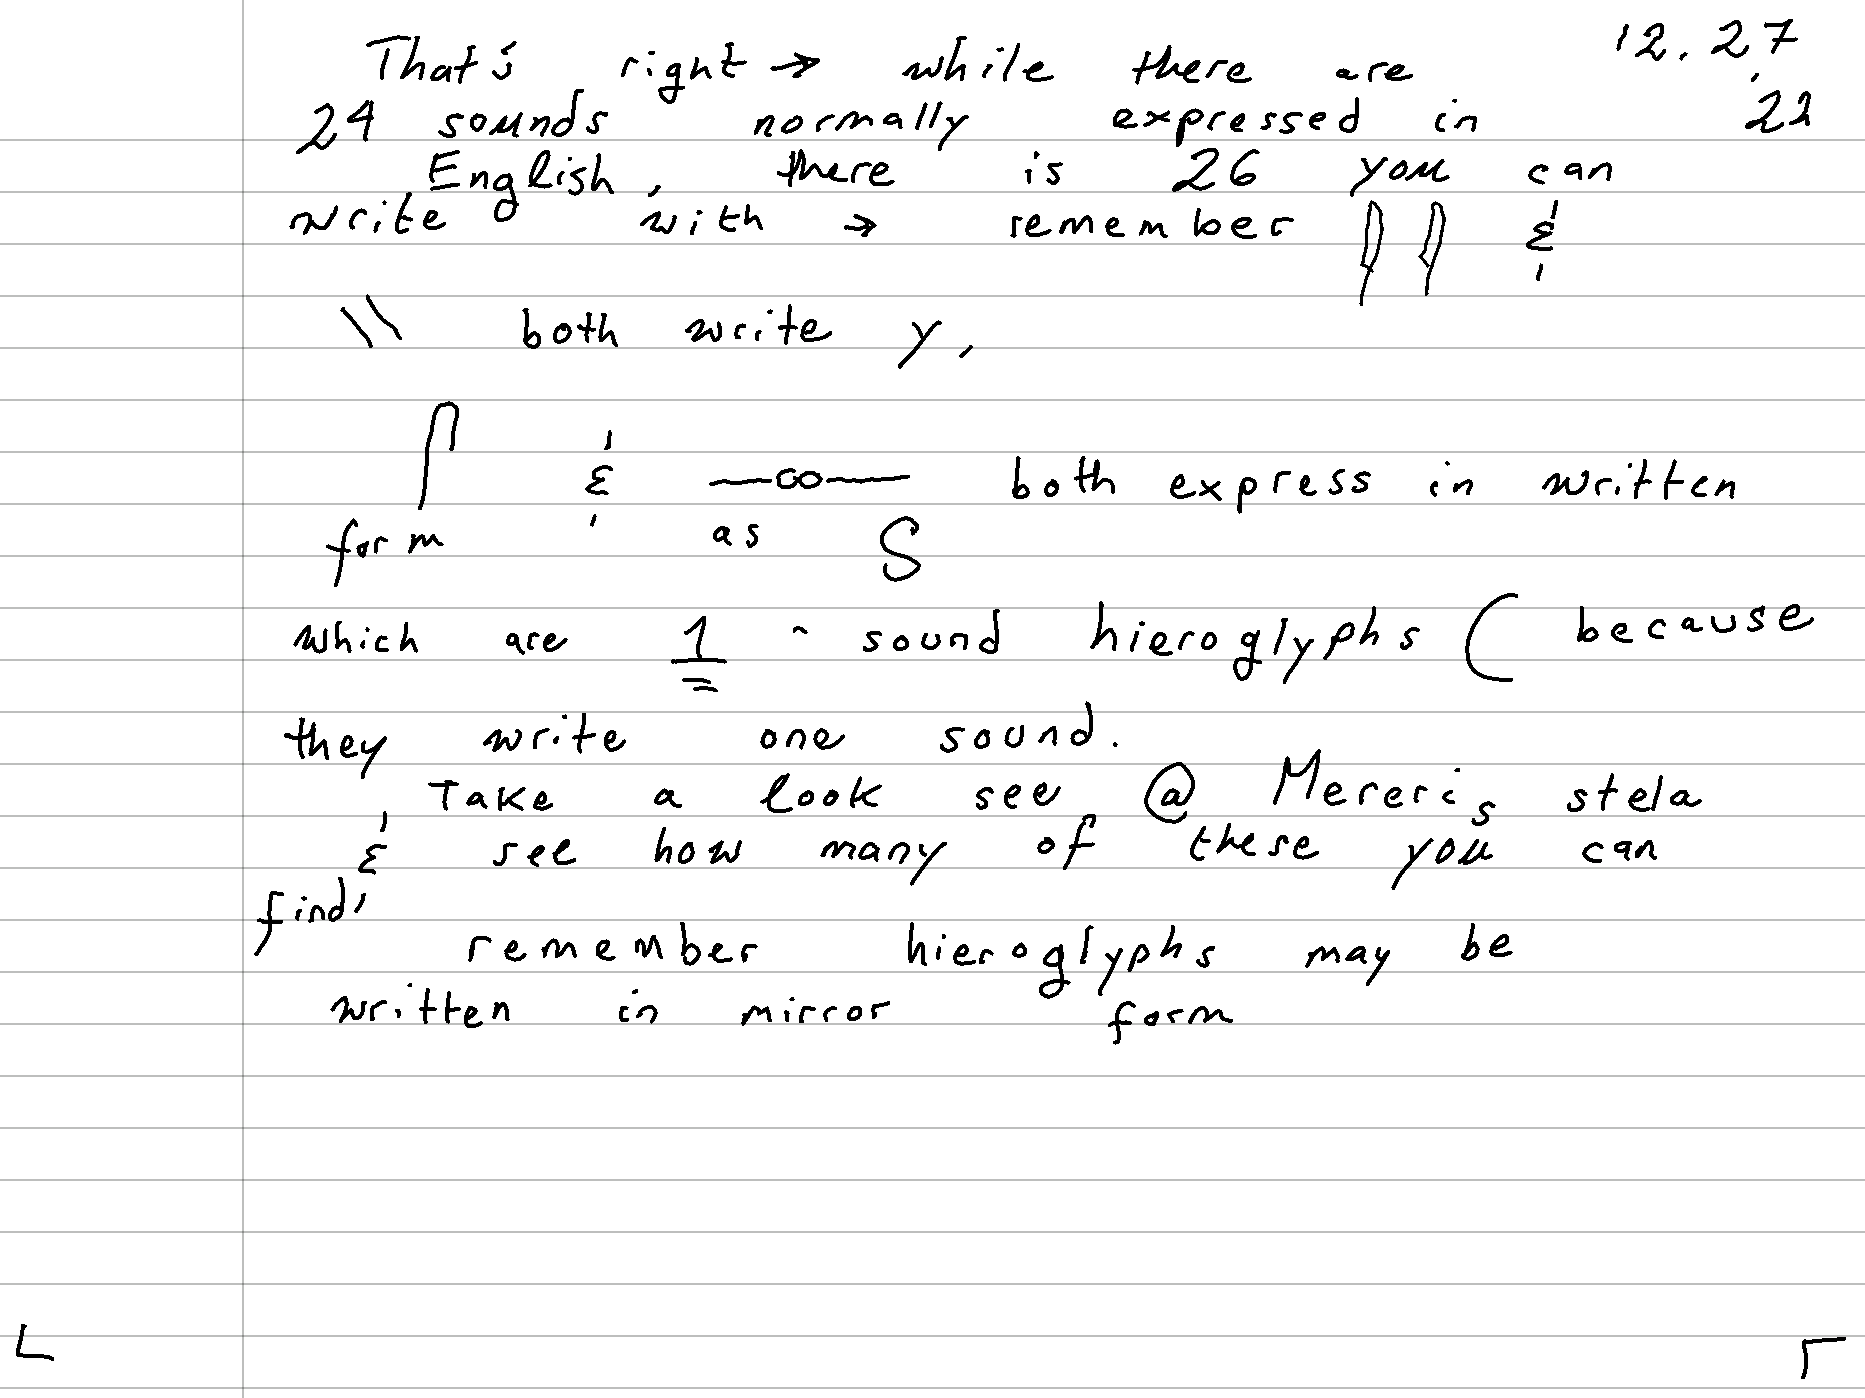 That's right → while there are 12.27
24 sounds normally expressed in '22
English, there is 26 you can
write with → remember 𓇋𓇋 &
\\ both write y,
𓋴 & 𓊃 both express in written
form as S
which are 1 - sound hieroglyphs ( because
they write one sound.
Take a look see @ Mereri's stela
& see how many of these you can
find,
remember hieroglyphs may be
written in mirror form